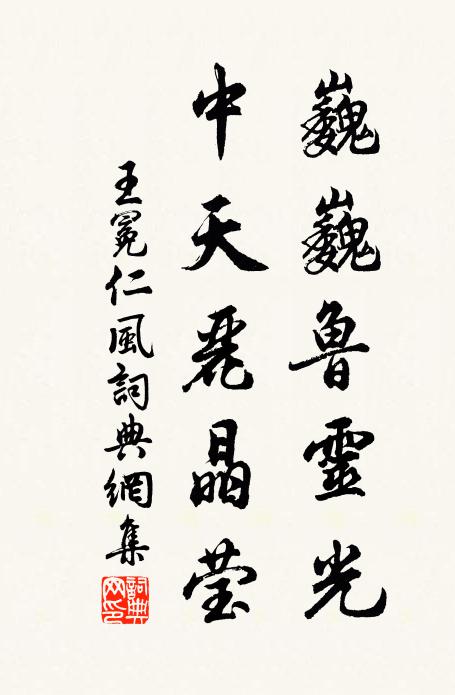 巍巍魯靈光
中天麗晶莹
王冕仁風詞典網集
詞典网印